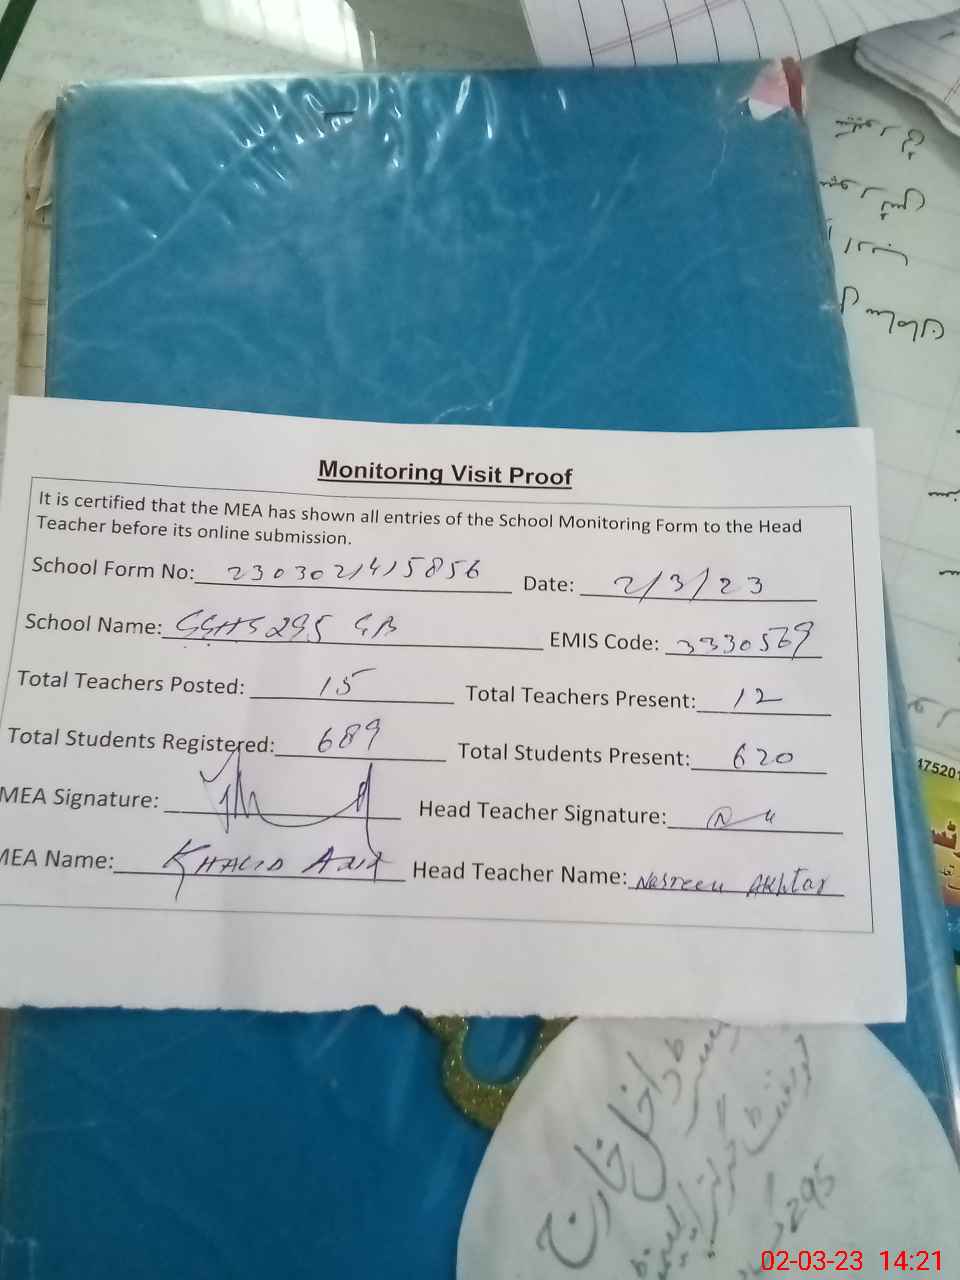 Monitoring Visit Proof
It is certified that the MEA has shown all entries of the School Monitoring Form to the Head
Teacher before its online submission.
School Form No: 2303021415856 Date: 2/3/23
School Name: GGHS 295 GB EMIS Code: 3330569
Total Teachers Posted: 15 Total Teachers Present: 12
Total Students Registered: 689 Total Students Present: 620
MEA Signature: Head Teacher Signature:
MEA Name: KHALID Aziz Head Teacher Name: Nasreen Akhtar
175201
داخل خارج
گورنمنٹ گرلز
295
02-03-23 14:21